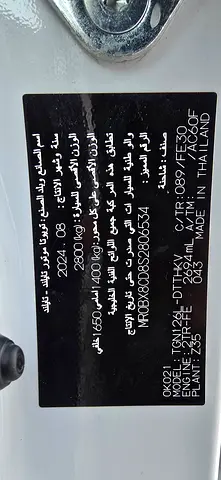 اسم المصنع وبلد الصنع: تويوتا موتور تايلاند - تايلاند
سنة وشهر الإنتاج: 2024 . 08
الوزن الأقصى للسيارة: 2800 (kg)
الوزن الأقصى على كل محور: 1400 (kg) أمامي 1650 خلفي
تطابق هذه المركبة جميع اللوائح الفنية الخليجية
والوطنية للسيارات التي صدرت حتى تاريخ الإنتاج
الرقم المميز: MR0BX8CD8S2806534
صنف: شاحنة
OK021
MODEL: TGN126L-DTTHKV C/TR:089/FE30
ENGINE: 2TR-FE 2694mL A/TM: /AC60F
PLANT: Z35 043 MADE IN THAILAND